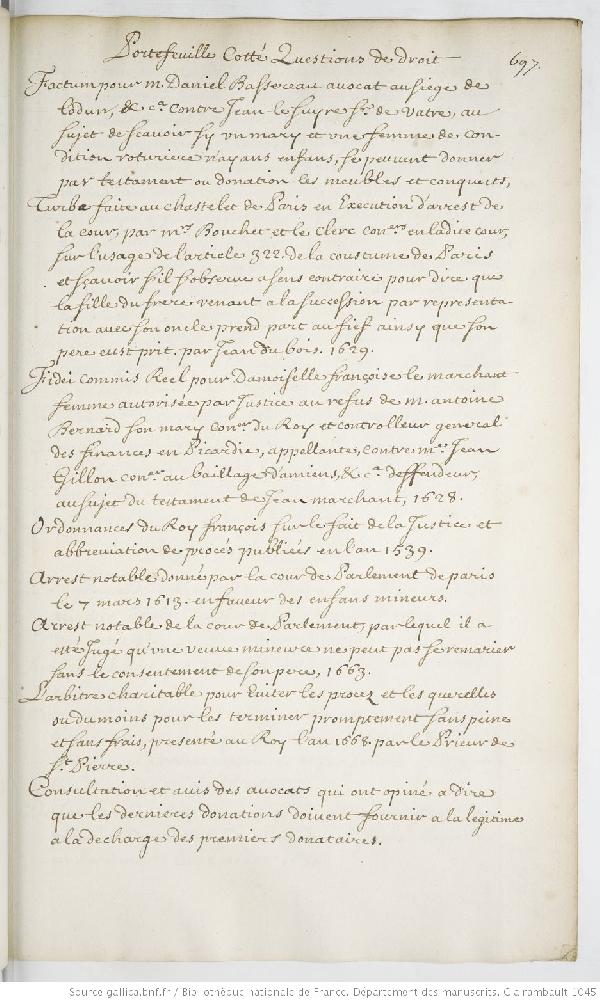 Portefeuille Cotté Questions de droit
697.
Factum pour m. Daniel Bassereau avocat au siege de
Lodun, &c.ª contre Jean le suyre s.r de Vatre, au
sujet de scavoir sy vn mary et vne femme de con-
dition roturiere n'ayans enfans, se peuuent donner
par testament ou donation les meubles et conquests,
Turbe faite au chastelet de Paris en Execution d'arrest de
la cour, par m.rs Bouchet et le Clerc con.ers en ladite cour,
sur l'usage de l'article 322. de la coustume de Paris
et sçavoir s'il s'observe a sens contraire pour dire que
la fille du frere venant a la succession par representa-
tion avec son oncle prend part au fief ainsy que son
pere eust prit. par Jean du bois. 1629.
Fidei commis Reel pour Damoiselle françoise le marchant
femme autorisée par Justice au refus de m. antoine
Bernard son mary con.er du Roy et controlleur general
des finances en Picardie, appellante, contre m.re Jean
Gillon con.er au baillage d'amiens, &c.ª deffendeur,
au sujet du testament de Jean marchant, 1628.
Ordonnances du Roy françois sur le fait de la Justice et
abbreviation de procés publiés en l'an 1539.
Arrest notable donné par la cour de Parlement de paris
le 7 mars 1613. en faueur des enfans mineurs.
Arrest notable de la cour de Parlement, par lequel il a
esté Jugé qu'vne veuue mineure ne peut pas se remarier
sans le consentement de son pere, 1663.
L'arbitre charitable pour Euiter les procez et les querelles
ou du moins pour les terminer promptement sans peine
et sans frais, presenté au Roy l'an 1668 par le Prieur de
S.t Pierre.
Consultation et auis des avocats qui ont opiné a dire
que les dernieres donations doiuent fournir a la legitime
a la decharge des premiers donataires.
Source gallica.bnf.fr / Bibliothèque nationale de France. Département des manuscrits. Clairambault 1045